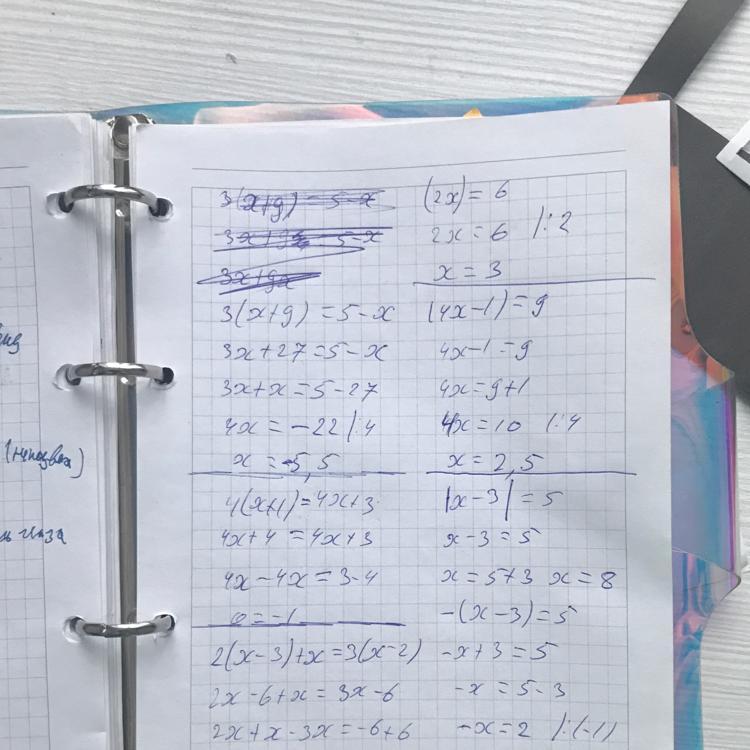 3(x+9) = 5-x
3(x+9) = 5-x
3x+27=5-x
3x+x=5-27
4x = -22 |:4
x = -5,5
4(x+1)=4x+3
4x+4=4x+3
4x-4x=3-4
0=-1
2(x-3)+x=3(x-2)
2x-6+x=3x-6
2x+x-3x=-6+6
(2x)=6
2x=6 |:2
x=3
|4x-1)=9
4x-1=9
4x=9+1
4x=10 |:4
x=2,5
|x-3|=5
x-3=5
x=5+3 x=8
-(x-3)=5
-x+3=5
-x=5-3
-x=2 |:(-1)